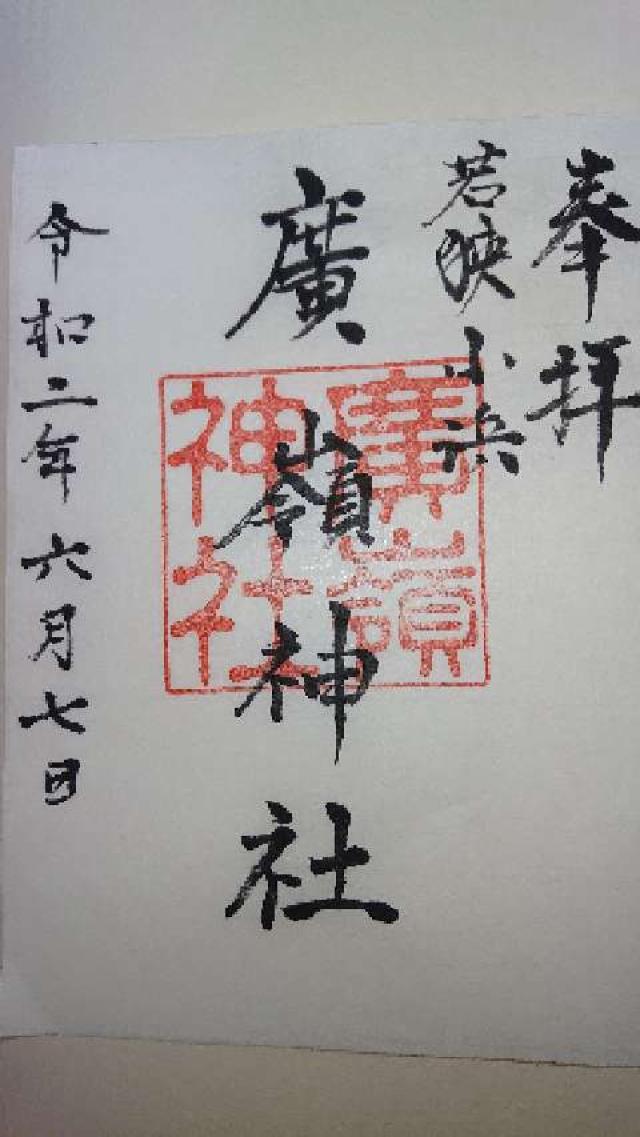 奉拝
若狭小浜
廣嶺神社
廣嶺
神社
令和二年六月七日